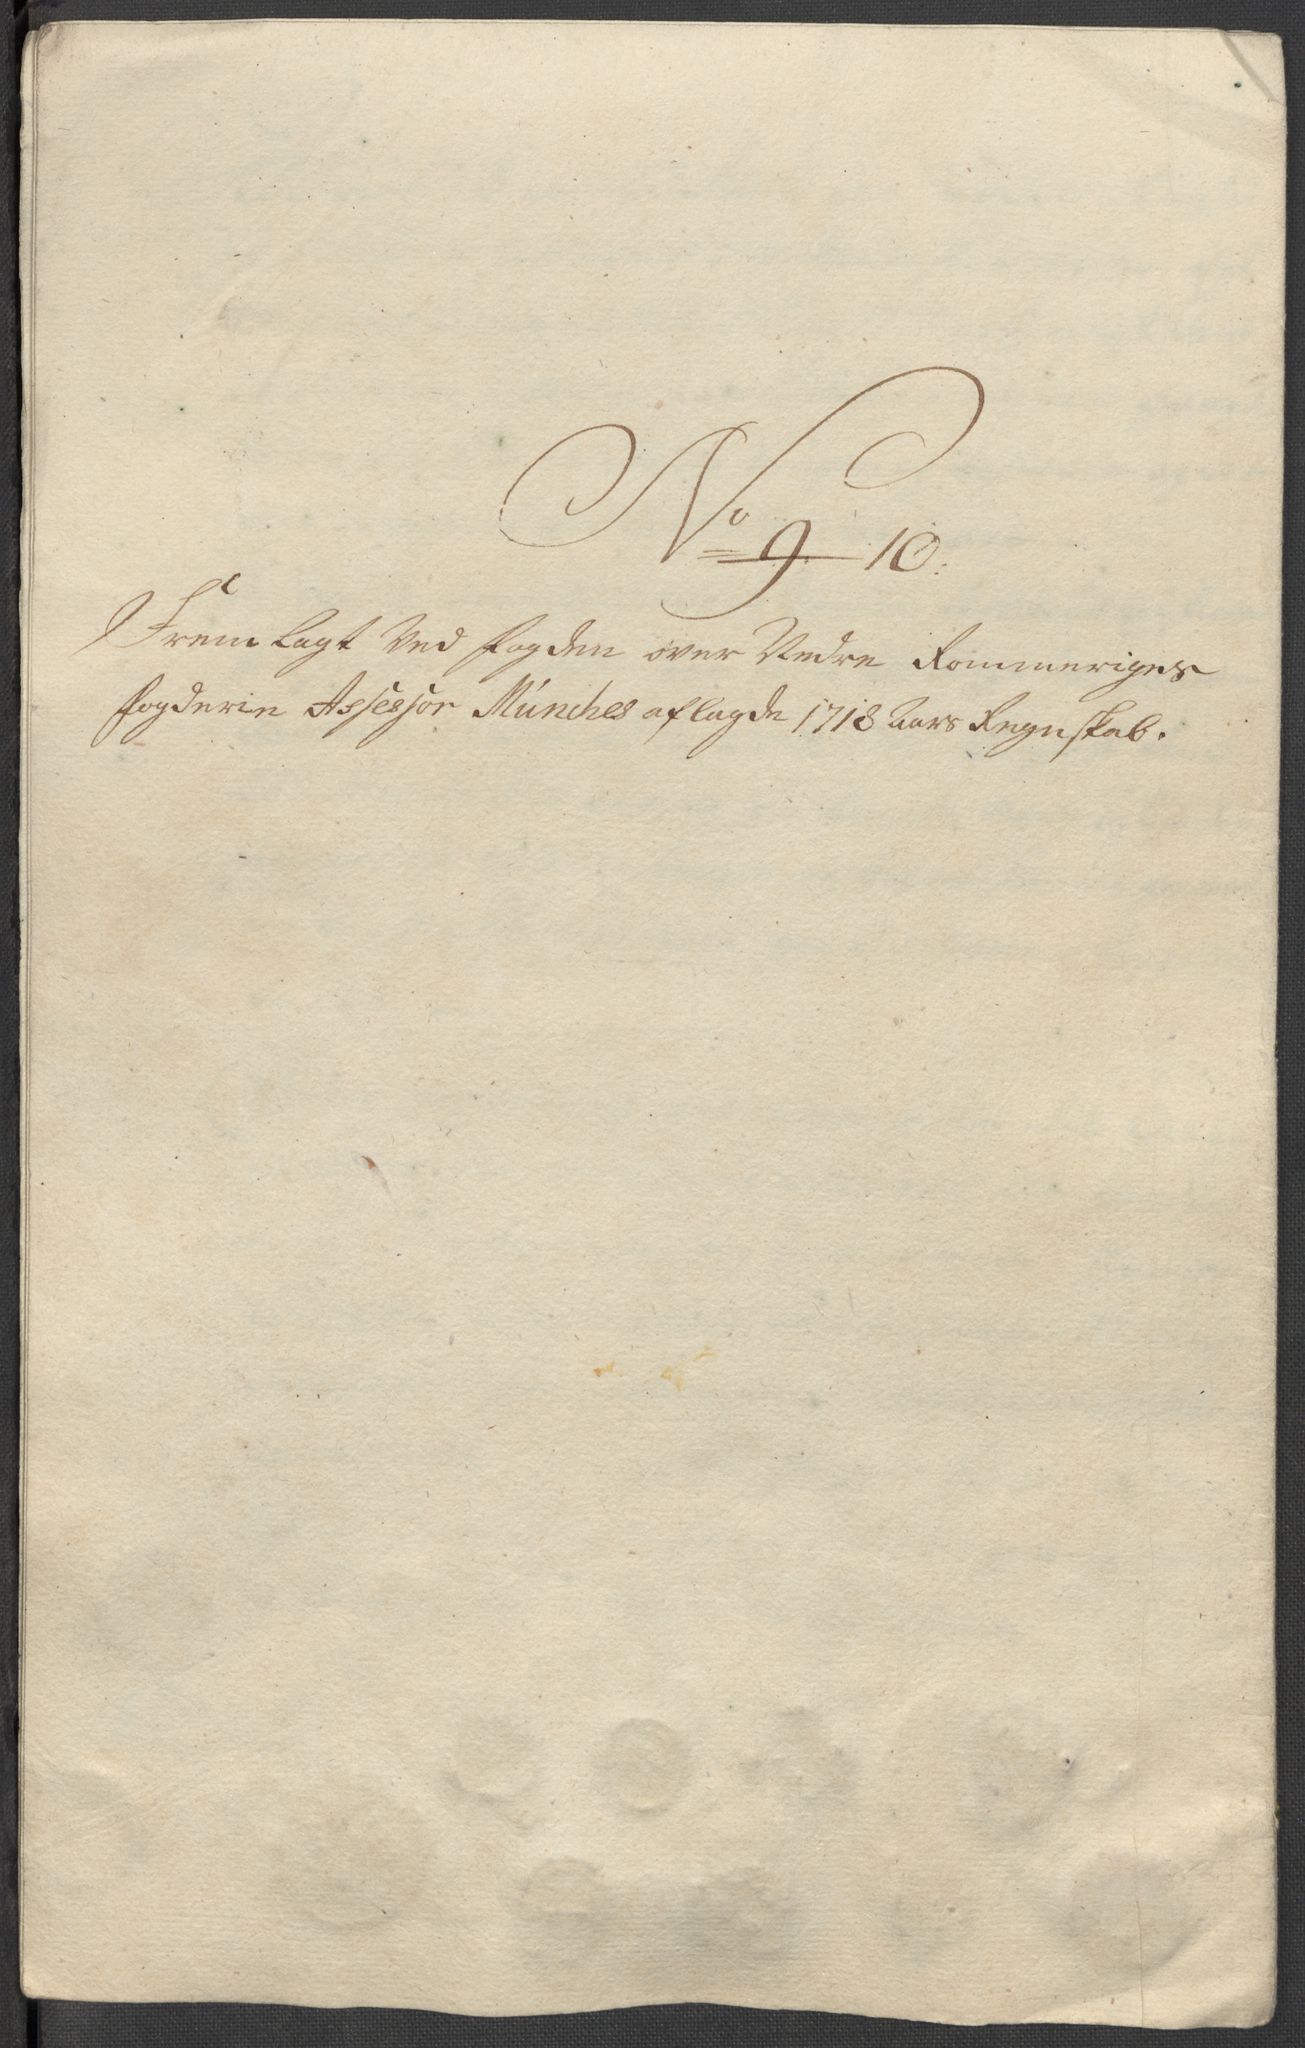 No 9 10.
Fremlagt ved fogden over Nedre Rommeriges
fogderie Assessor Münches aflagde 1718 aars Regnskab.